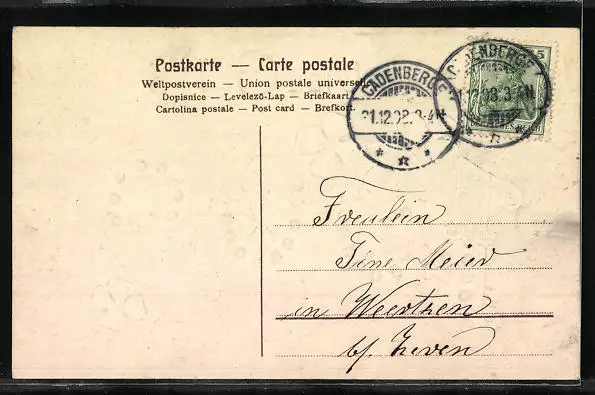 Postkarte — Carte postale
Weltpostverein — Union postale universelle
Dopisnice — Levelező-Lap — Briefkaart
Cartolina postale — Post card — Brefkort
CADENBERGE
12. 3-4N
CADENBERGE
5
Freulein
Tine Meier
in Weertzen
b/. Zeven